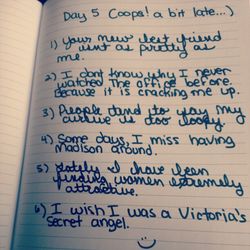 Day 5 (oops! a bit late...)
1) Your new best friend
isnt as pretty as
me.
2) I dont know why I never
watched The Office before
because it is cracking me up.
3) People tend to say my
cursive is too loopy.
4) Some days, I miss having
Madison around.
5) Lately I have been
finding women extremely
attractive.
6) I wish I was a Victoria's
secret angel.